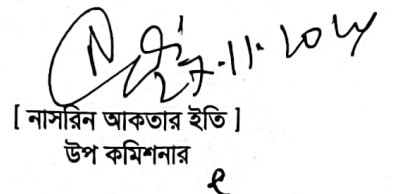 27.11.2024
[ নাসরিন আকতার ইতি ]
উপ কমিশনার